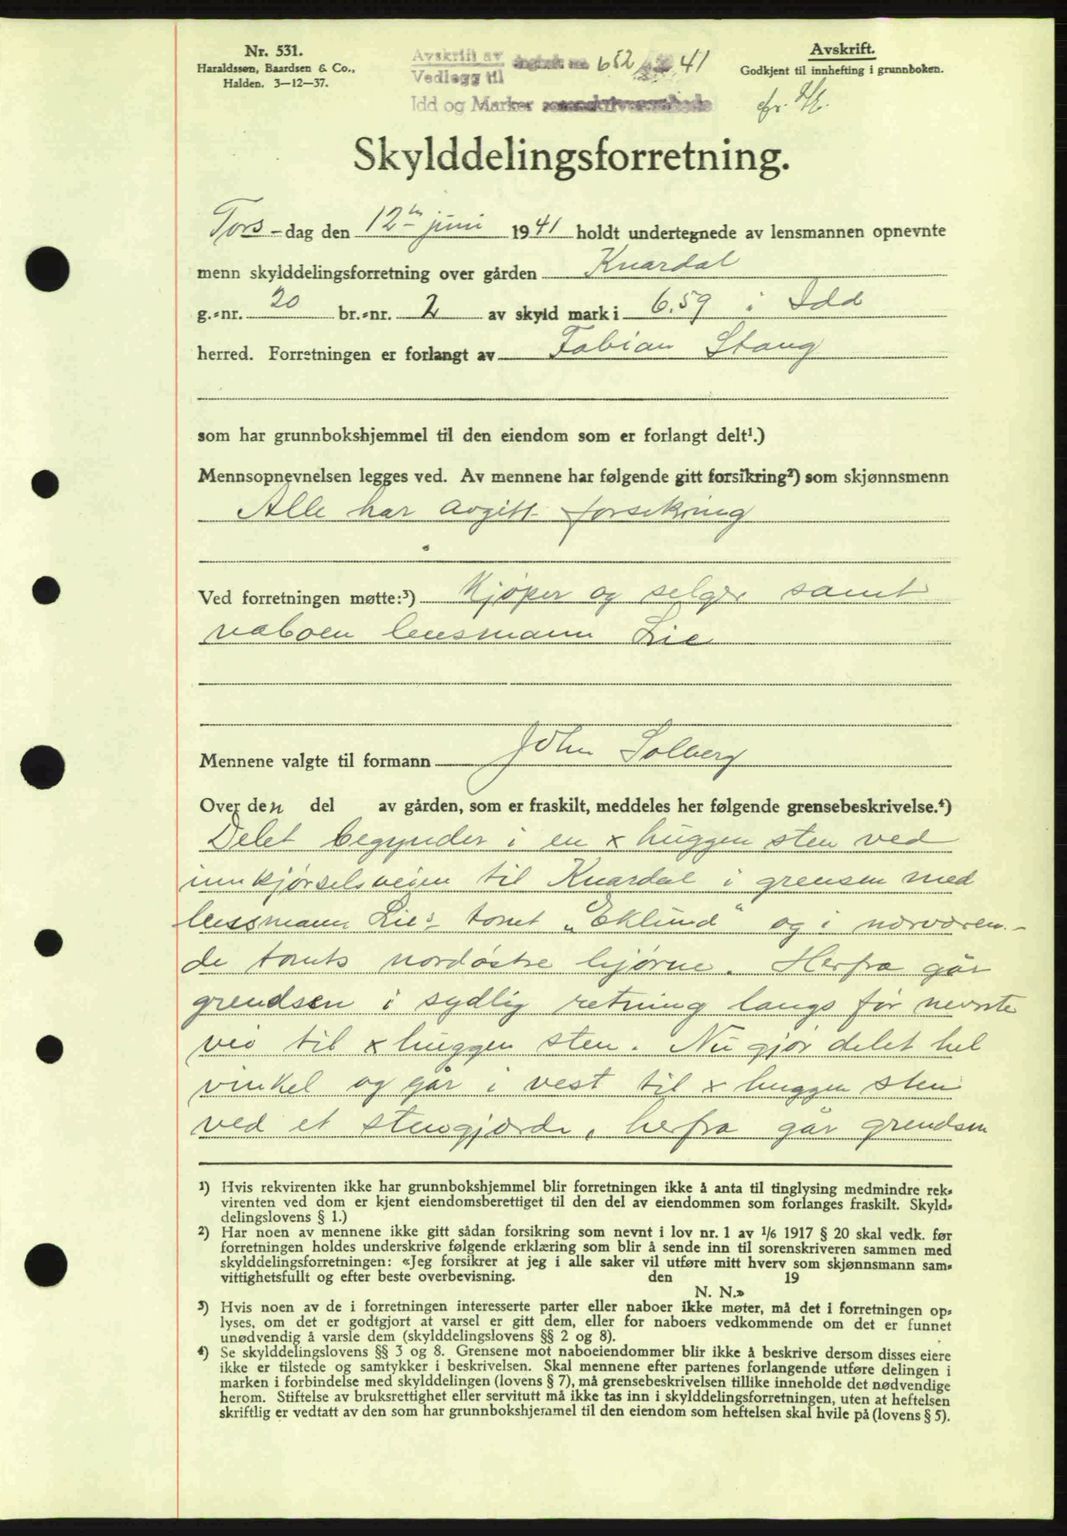 Nr. 531.
Haraldssøn, Baardsen & Co.,
Halden. 3-12-37.
Avskrift av dagbok nr. 652 41
Vedlegg til
Idd og Marker sorenskriverembede
Avskrift.
Godkjent til innhefting i grunnboken.
Skylddelingsforretning.
Tors-dag den 12te juni 1941 holdt undertegnede av lensmannen opnevnte
menn skylddelingsforretning over gården Knardal
g.-nr. 20 br.-nr. 2 av skyld mark i 6.59 i Idd
herred. Forretningen er forlangt av Fabian Stang
som har grunnbokshjemmel til den eiendom som er forlangt delt¹.)
Mennsopnevnelsen legges ved. Av mennene har følgende gitt forsikring²) som skjønnsmenn
Alle har avgitt forsikring
Ved forretningen møtte:³) Kjøper og selger samt
naboen lensmann Lie
Mennene valgte til formann John Solberg
Over den del av gården, som er fraskilt, meddeles her følgende grensebeskrivelse.⁴)
Delet begynder i en x huggen sten ved
innkjørselsveien til Knardal i grensen med
lensmann Lie's tomt „Eklund" og i nærværen-
de tomts nordøstre hjørne. Herfra går
grendsen i sydlig retning langs før nevnte
vei til x huggen sten. Nu gjør delet hel
vinkel og går i vest til x huggen sten
ved et stengjærde, herfra går grendsen
¹) Hvis rekvirenten ikke har grunnbokshjemmel blir forretningen ikke å anta til tinglysing medmindre rek-
virenten ved dom er kjent eiendomsberettiget til den del av eiendommen som forlanges fraskilt. Skyld-
delingslovens § 1.)
²) Har noen av mennene ikke gitt sådan forsikring som nevnt i lov nr. 1 av 1/6 1917 § 20 skal vedk. før
forretningen holdes underskrive følgende erklæring som blir å sende inn til sorenskriveren sammen med
skylddelingsforretningen: «Jeg forsikrer at jeg i alle saker vil utføre mitt hverv som skjønnsmann sam-
vittighetsfullt og efter beste overbevisning. den 19
N. N.»
³) Hvis noen av de i forretningen interesserte parter eller naboer ikke møter, må det i forretningen op-
lyses, om det er godtgjort at varsel er gitt dem, eller for naboers vedkommende om det er funnet
unødvendig å varsle dem (skylddelingslovens §§ 2 og 8).
⁴) Se skylddelingslovens §§ 3 og 8. Grensene mot naboeiendommer blir ikke å beskrive dersom disses eiere
ikke er tilstede og samtykker i beskrivelsen. Skal mennene efter partenes forlangende utføre delingen i
marken i forbindelse med skylddelingen (lovens § 7), må grensebeskrivelsen tillike inneholde det nødvendige
herom. Stiftelse av bruksrettighet eller servitutt må ikke tas inn i skylddelingsforretningen, uten at heftelsen
skriftlig er vedtatt av den som har grunnbokshjemmel til den eiendom som heftelsen skal hvile på (lovens § 5).